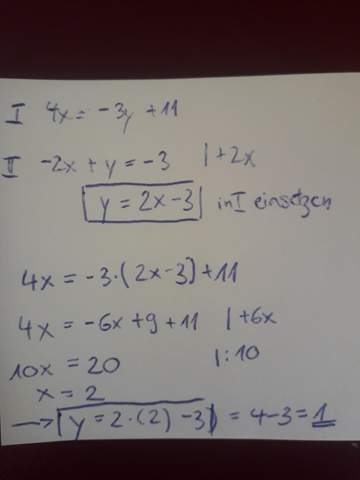 I 4x = -3y + 11
II -2x + y = -3 | +2x
y = 2x - 3 in I einsetzen
4x = -3·(2x-3) + 11
4x = -6x + 9 + 11 | +6x
10x = 20 | : 10
x = 2
→ y = 2·(2) - 3 = 4-3 = 1